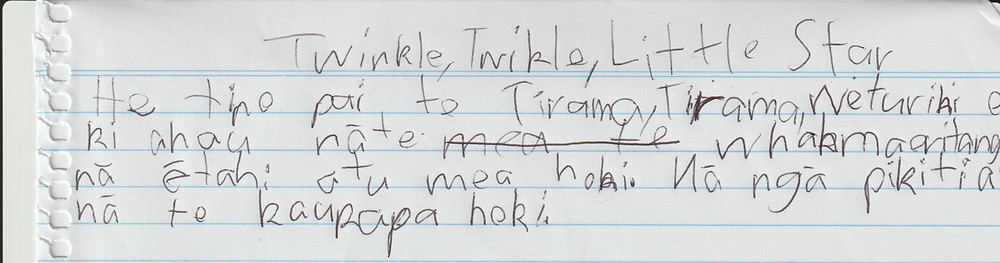 Twinkle, Twikle, Little Star
He tino pai te Tirama, Tirama, Weturiki e
ki ahau nā te mea te whakmaoritang
nā ētahi atu mea hoki. Nā ngā pikitia
nā te kaupapa hoki.